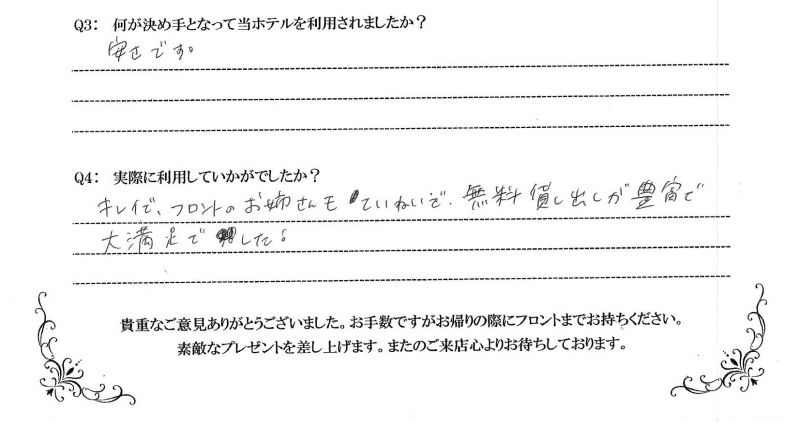 Q3： 何が決め手となって当ホテルを利用されましたか？
安さです。
Q4： 実際に利用していかがでしたか？
キレイで、フロントのお姉さんもていねいで、無料貸し出しが豊富で
大満足でした！
貴重なご意見ありがとうございました。お手数ですがお帰りの際にフロントまでお持ちください。
素敵なプレゼントを差し上げます。またのご来店心よりお待ちしております。